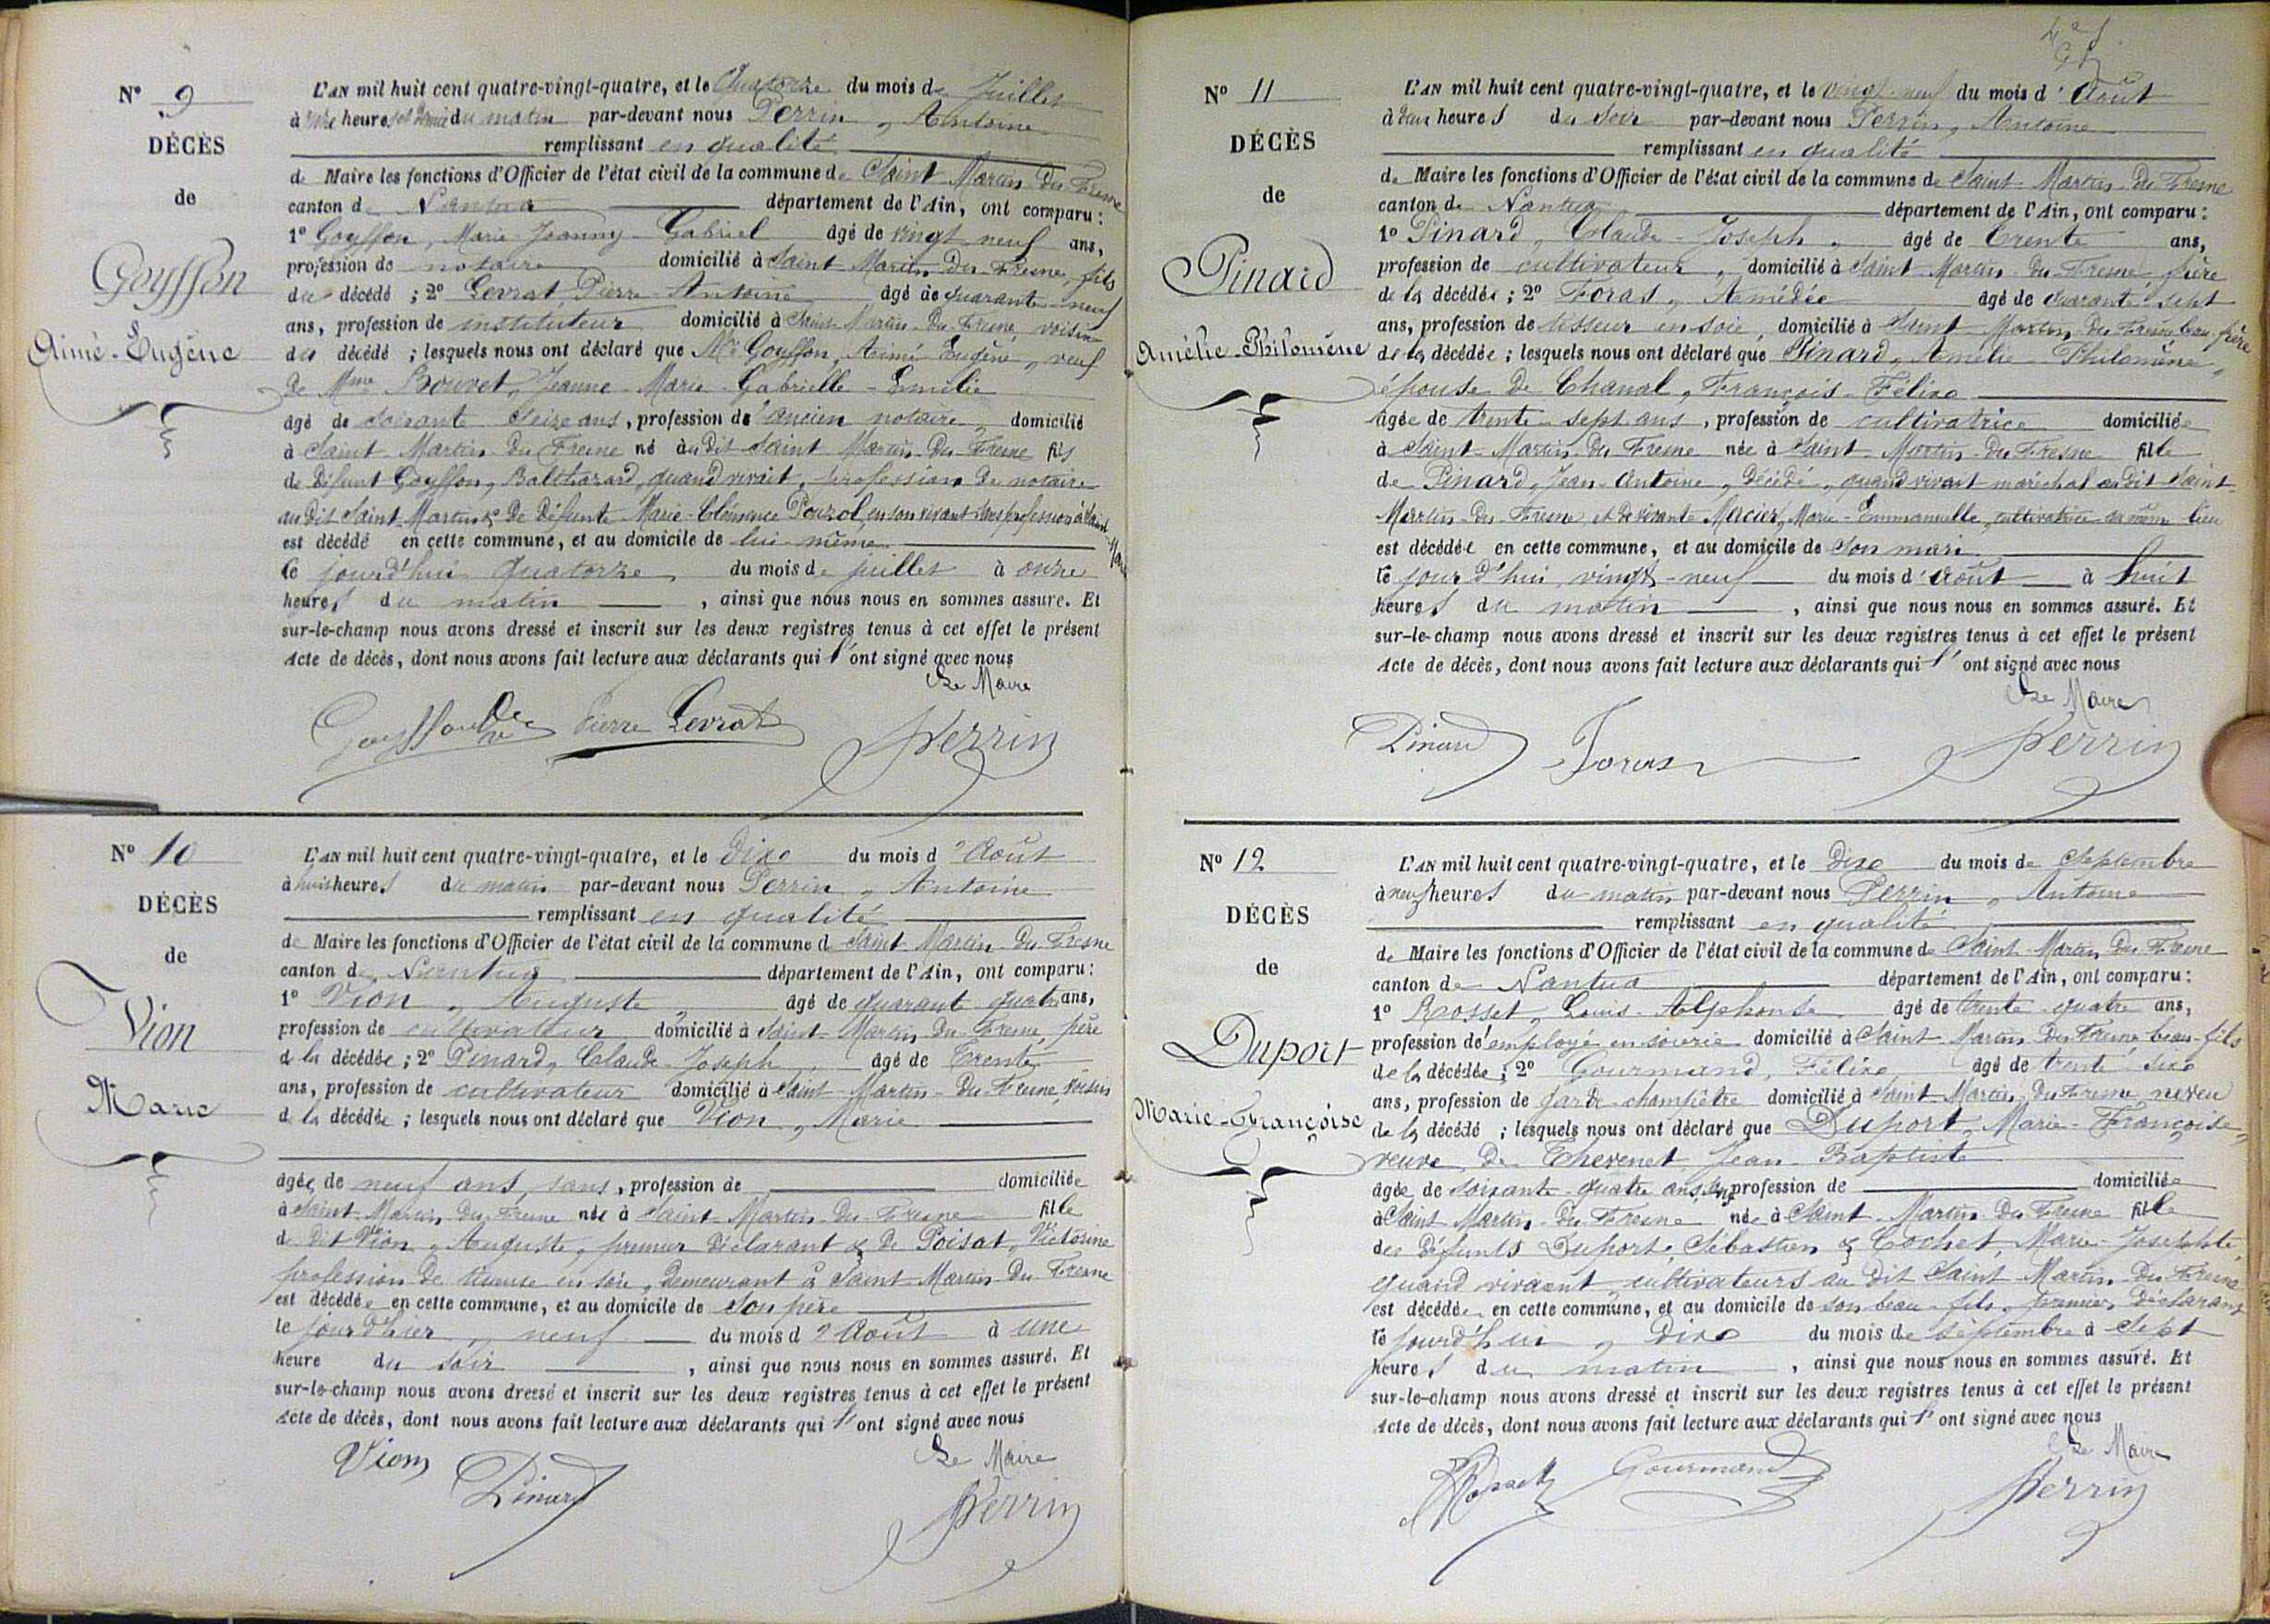 N° 9
DÉCÈS
de
Goyffon
Aimé-Eugène
L'AN mil huit cent quatre-vingt-quatre, et le Quatorze du mois de Juillet
à onze heures et demie du matin par-devant nous Perrin, Antoine
remplissant en qualité
de Maire les fonctions d'Officier de l'état civil de la commune de Saint-Martin-Du-Fresne
canton de Nantua département de l'Ain, ont comparu :
1° Goyffon, Marie-Joanny-Gabriel âgé de vingt-neuf ans,
profession de notaire domicilié à Saint-Martin-Du-Fresne, fils
du décédé ; 2° Levrat, Pierre-Antoine âgé de quarante-neuf
ans, profession de instituteur domicilié à Saint-Martin-Du-Fresne, voisin
du décédé ; lesquels nous ont déclaré que Mr Goyffon, Aimé Eugène, veuf
de Mme Bouvet, Jeanne-Marie-Gabrielle-Emilie
âgé de soixante seize ans, profession d'ancien notaire domicilié
à Saint-Martin-Du-Fresne né au dit Saint-Martin-Du-Fresne fils
de défunt Goyffon, Balthazard, quand vivait, profession de notaire
au dit Saint-Martin & de défunte Marie-Clémence Pouzol, en son vivant sans profession à Saint-Martin
est décédé en cette commune, et au domicile de lui-même
le jourd'hui quatorze du mois de juillet à onze
heures du matin , ainsi que nous nous en sommes assuré. Et
sur-le-champ nous avons dressé et inscrit sur les deux registres tenus à cet effet le présent
Acte de décès, dont nous avons fait lecture aux déclarants qui l'ont signé avec nous
Le Maire
Goyffon Pierre Levrat Perrin
N° 10
DÉCÈS
de
Vion
Marie
L'AN mil huit cent quatre-vingt-quatre, et le Dix du mois d'Août
à huit heures du matin par-devant nous Perrin, Antoine
remplissant en qualité
de Maire les fonctions d'Officier de l'état civil de la commune de Saint-Martin-Du-Fresne
canton de Nantua département de l'Ain, ont comparu :
1° Vion, Auguste, âgé de quarante-quatre ans,
profession de cultivateur domicilié à Saint-Martin-Du-Fresne, père
de la décédée ; 2° Pinard, Claude-Joseph, âgé de Trente
ans, profession de cultivateur domicilié à Saint-Martin-Du-Fresne, voisin
de la décédée ; lesquels nous ont déclaré que Vion, Marie
âgée de neuf ans, sans, profession de domiciliée
à Saint-Martin-Du-Fresne née à Saint-Martin-Du-Fresne fille
de dit Vion, Auguste, premier déclarant & de Poisat, Victorine
profession de tisseuse en soie, demeurant à Saint-Martin-Du-Fresne
est décédée en cette commune, et au domicile de son père
le jour d'hier, neuf du mois d'Août à une
heure du soir , ainsi que nous nous en sommes assuré. Et
sur-le-champ nous avons dressé et inscrit sur les deux registres tenus à cet effet le présent
Acte de décès, dont nous avons fait lecture aux déclarants qui l'ont signé avec nous
Le Maire
Vion Pinard Perrin
N° 11
DÉCÈS
de
Pinard
Amélie-Philomène
L'AN mil huit cent quatre-vingt-quatre, et le vingt-neuf du mois d'Août
à deux heures du soir par-devant nous Perrin, Antoine
remplissant en qualité
de Maire les fonctions d'Officier de l'état civil de la commune de Saint-Martin-Du-Fresne
canton de Nantua département de l'Ain, ont comparu :
1° Pinard, Claude-Joseph, âgé de Trente ans,
profession de cultivateur, domicilié à Saint-Martin-Du-Fresne, frère
de la décédée ; 2° Foras, Amédée âgé de quarante-sept
ans, profession de tisseur en soie, domicilié à Saint-Martin-Du-Fresne, beau-frère
de la décédée ; lesquels nous ont déclaré que Pinard, Amélie-Philomène,
épouse de Chanal, François-Félix
âgée de trente-sept ans, profession de cultivatrice domiciliée
à Saint-Martin-Du-Fresne née à Saint-Martin-Du-Fresne fille
de Pinard, Jean-Antoine, décédé, quand vivait maréchal au dit Saint-
Martin-Du-Fresne et de vivante Mercier, Marie-Emmanuelle, cultivatrice au même lieu
est décédée en cette commune, et au domicile de son mari
le jour d'hui vingt-neuf du mois d'Août à huit
heures du matin , ainsi que nous nous en sommes assuré. Et
sur-le-champ nous avons dressé et inscrit sur les deux registres tenus à cet effet le présent
Acte de décès, dont nous avons fait lecture aux déclarants qui l'ont signé avec nous
Le Maire
Pinard Foras Perrin
N° 12
DÉCÈS
de
Duport
Marie-Françoise
L'AN mil huit cent quatre-vingt-quatre, et le Dix du mois de Septembre
à neuf heures du matin par-devant nous Perrin, Antoine
remplissant en qualité
de Maire les fonctions d'Officier de l'état civil de la commune de Saint-Martin-Du-Fresne
canton de Nantua département de l'Ain, ont comparu :
1° Rosset, Louis-Alphonse âgé de trente-quatre ans,
profession d'employé en soierie domicilié à Saint-Martin-Du-Fresne beau-fils
de la décédée ; 2° Gourmand, Félix, âgé de trente-six
ans, profession de garde-champêtre domicilié à Saint-Martin-Du-Fresne, neveu
de la décédé ; lesquels nous ont déclaré que Duport, Marie-Françoise,
veuve de Thevenet Jean-Baptiste
âgée de soixante-quatre ans, sans profession de domiciliée
à Saint-Martin-Du-Fresne née à Saint-Martin-Du-Fresne fille
des défunts Duport, Sébastien & Cochet, Marie-Josephte,
quand vivaient cultivateurs au dit Saint-Martin-Du-Fresne
est décédée en cette commune, et au domicile de son beau-fils, premier déclarant
le jourd'hui, dix du mois de septembre à sept
heures du matin , ainsi que nous nous en sommes assuré. Et
sur-le-champ nous avons dressé et inscrit sur les deux registres tenus à cet effet le présent
Acte de décès, dont nous avons fait lecture aux déclarants qui l'ont signé avec nous
Le Maire
Rosset Gourmand Perrin